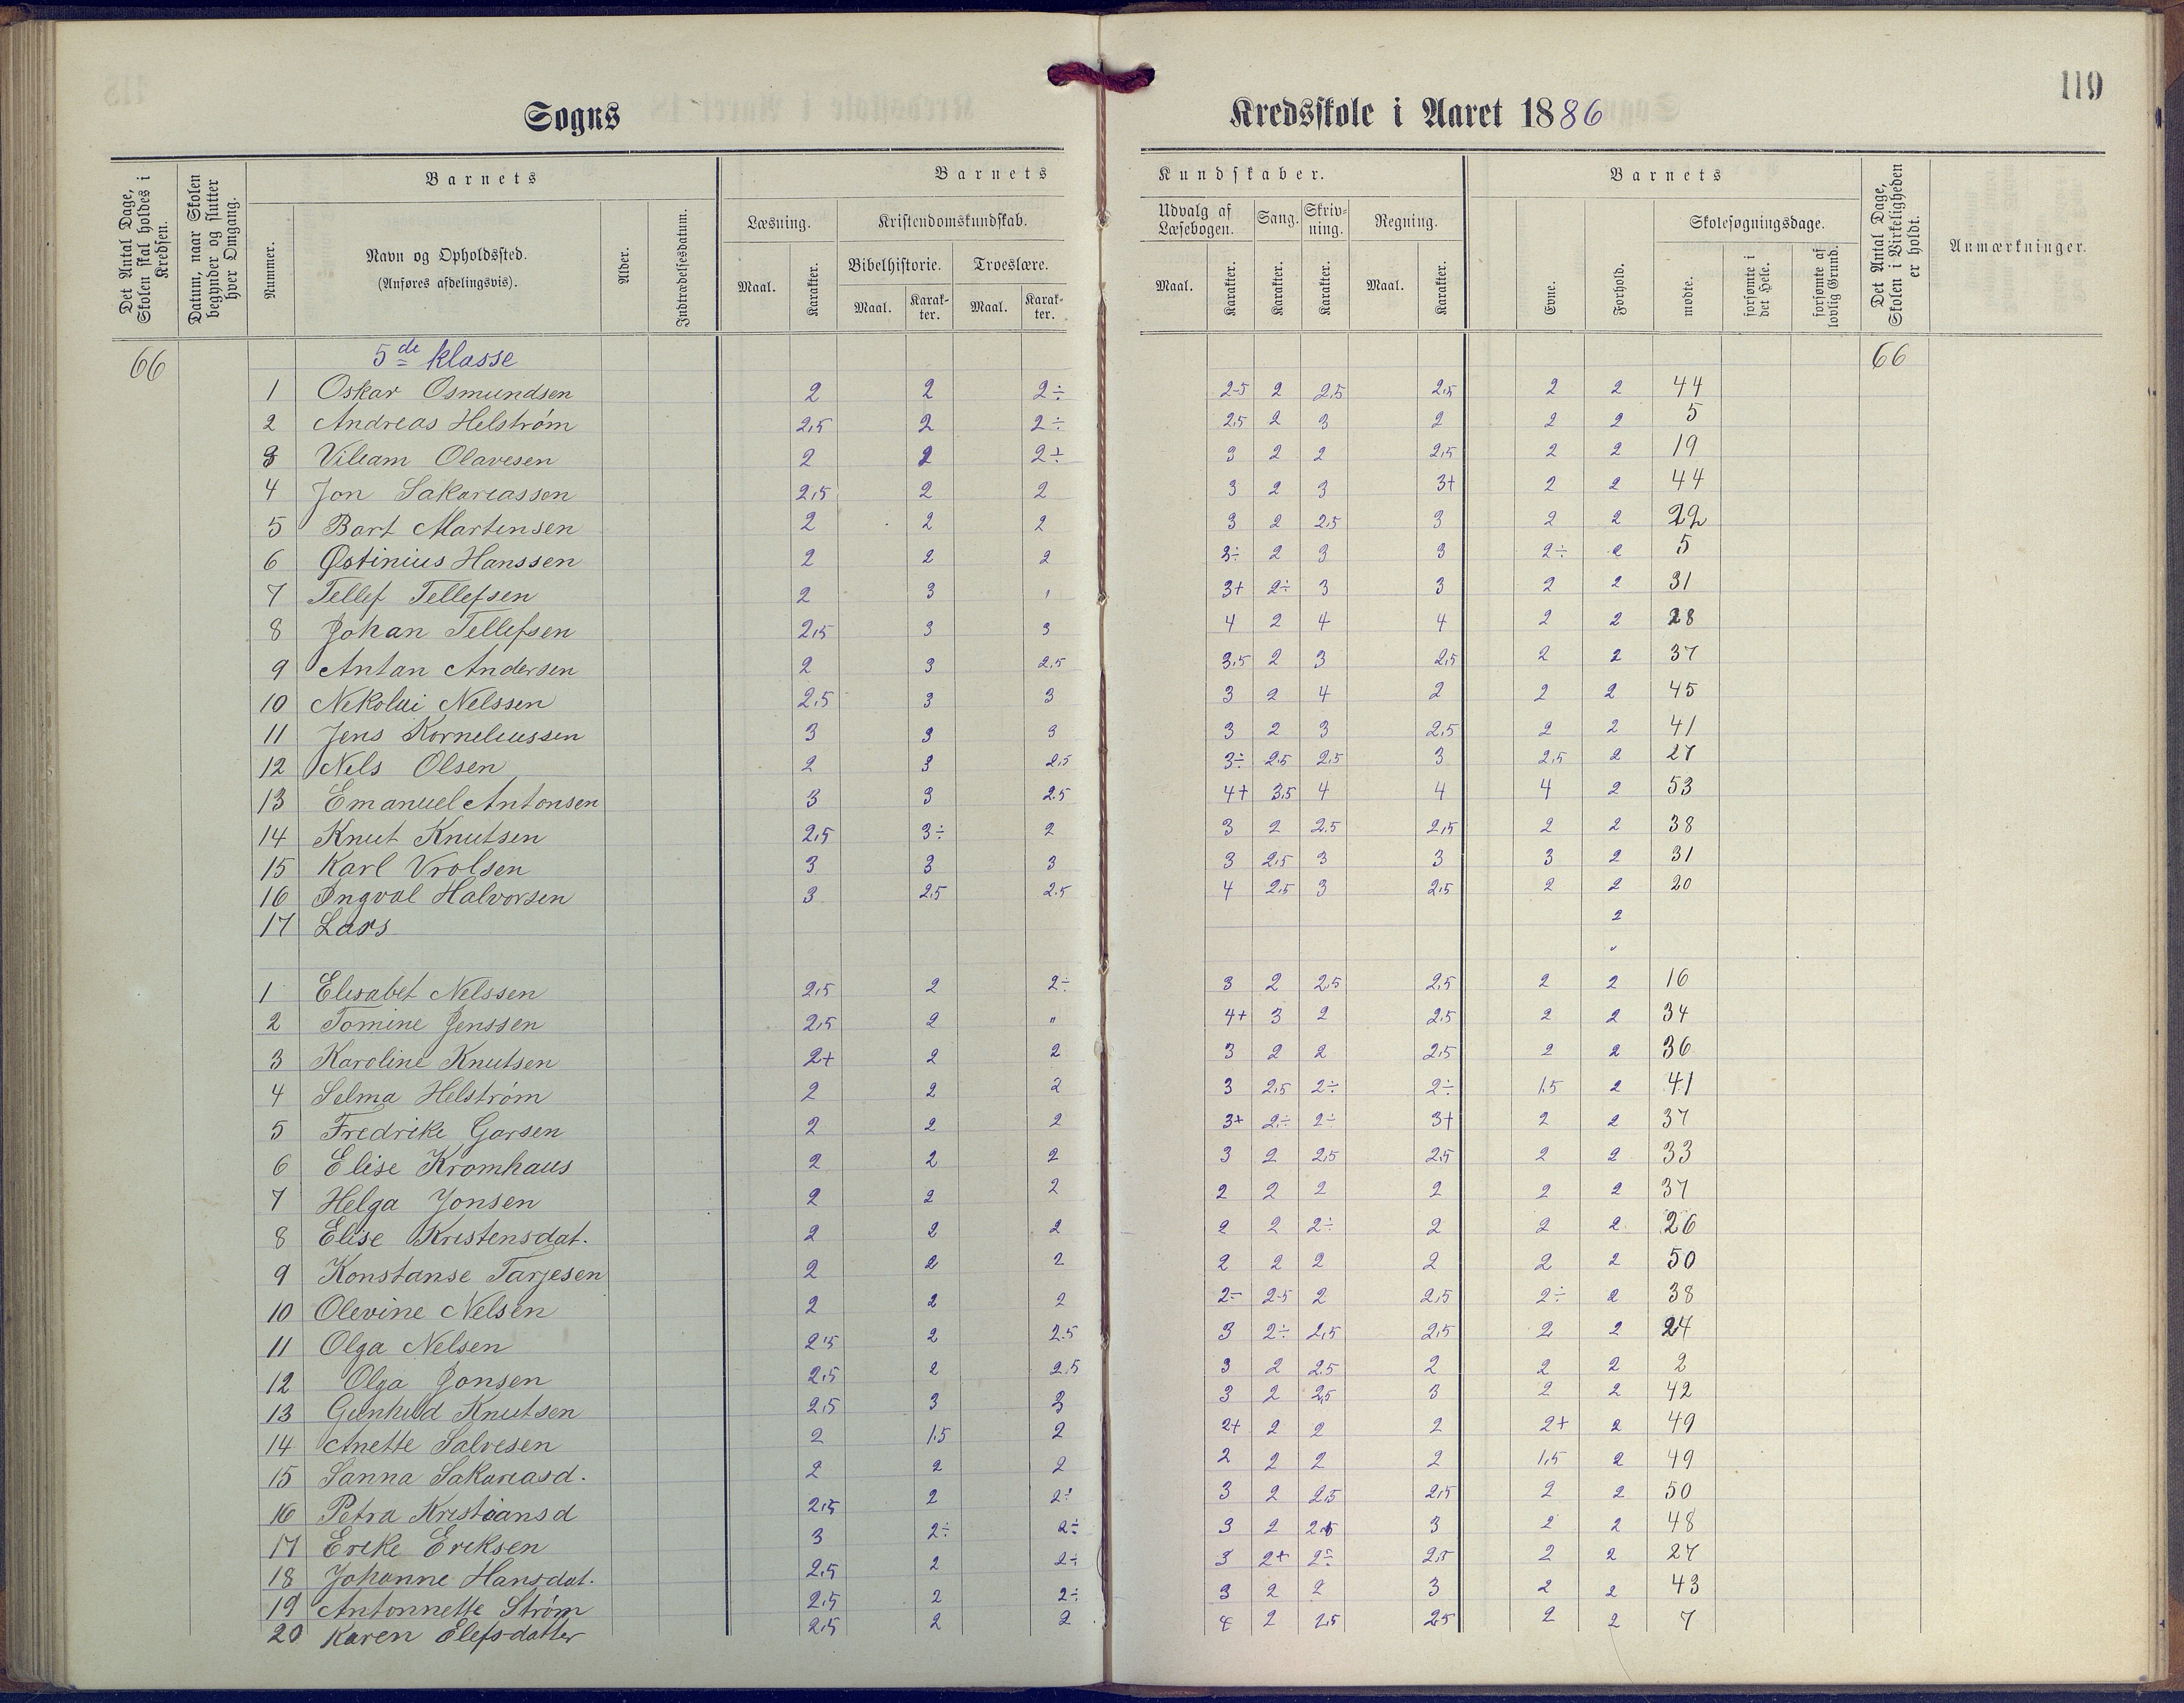 119
Sogns Kredsskole i Aaret 1886
Det Antal Dage, Skolen skal holdes i Kredsen.
Datum, naar Skolen begynder og slutter hver Omgang.
Barnets
Nummer.
Navn og Opholdssted.
(Anføres afdelingsvis).
Alder.
Indtrædelsesdatum.
Barnets Kundskaber.
Læsning.
Maal. Karakter.
Kristendomskundskab.
Bibelhistorie. Troeslære.
Maal. Karakter. Maal. Karakter.
Udvalg af Læsebogen. Sang. Skrivning. Regning.
Maal. Karakter. Karakter. Karakter. Maal. Karakter.
Barnets
Evne. Forhold.
Skolesøgningsdage.
mødte. forsømte i det Hele. forsømte af lovlig Grund.
Det Antal Dage, Skolen i Virkeligheden er holdt.
Anmærkninger.
66 5de klasse 66
1 Oskar Osmundsen 2 2 2÷ 2.5 2 2,5 2,5 2 2 44
2 Andreas Helstrøm 2,5 2 2÷ 2,5 2 3 2 2 2 5
3 Vileam Olavesen 2 2 2÷ 3 2 2 2,5 2 2 19
4 Jon Sakareassen 2,5 2 2 3 2 3 3+ 2 2 44
5 Bart Martensen 2 2 2 3 2 2,5 3 2 2 22
6 Østinius Hanssen 2 2 2 3÷ 2 3 3 2÷ 2 5
7 Tellef Tellefsen 2 3 3+ 2÷ 3 3 2 2 31
8 Johan Tellefsen 2,5 3 3 4 2 4 4 2 2 28
9 Antan Andersen 2 3 2,5 3,5 2 3 2,5 2 2 37
10 Nekolai Nelssen 2,5 3 3 3 2 4 2 2 2 45
11 Jens Korneleussen 3 3 3 3 2 3 2,5 2 2 41
12 Nels Olsen 2 3 2,5 3÷ 2,5 2,5 3 2,5 2 27
13 Emanuel Antonsen 3 3 2.5 4+ 3,5 4 4 4 2 53
14 Knut Knutsen 2,5 3÷ 2 3 2 2.5 2,5 2 2 38
15 Karl Vrolsen 3 3 3 3 2,5 3 3 3 2 31
16 Ingval Halvorsen 3 2,5 2.5 4 2,5 3 2,5 2 2 20
17 Lars 2
1 Elesabet Nelssen 2,5 2 2÷ 3 2 2,5 2,5 2 2 16
2 Tomine Jenssen 2,5 2 " 4+ 3 2 2,5 2 2 34
3 Karoline Knutsen 2+ 2 2 3 2 2 2,5 2 2 36
4 Selma Helstrøm 2 2 2 3 2,5 2÷ 2÷ 1,5 2 41
5 Fredrike Garsen 2 2 2 3+ 2÷ 2÷ 3+ 2 2 37
6 Elise Kromhaus 2 2 2 3 2 2,5 2,5 2 2 33
7 Helga Jonsen 2 2 2 2 2 2 2 2 2 37
8 Elise Kristensdat. 2 2 2 2 2 2÷ 2 2 2 26
9 Konstanse Tarjesen 2 2 2 2 2 2 2 2 2 50
10 Olevine Nelsen 2 2 2 2÷ 2.5 2 2,5 2÷ 2 38
11 Olga Nelsen 2,5 2 2.5 3 2÷ 2,5 2,5 2 2 24
12 Olga Jonsen 2,5 2 2,5 3 2 2.5 2 2 2 2
13 Gunhild Knutsen 2,5 3 3 3 2 2,5 3 2 2 42
14 Anette Salvesen 2 1.5 2 2+ 2 2 2 2+ 2 49
15 Sanna Sakareasd. 2 2 2 2 2 2 2 1,5 2 49
16 Petra Kristiansd 2,5 2 2÷ 3 2 2,5 2,5 2 2 50
17 Ereke Ereksen 3 2÷ 2÷ 3 2 2,5 3 2 2 48
18 Johanne Hansdat. 2,5 2 2÷ 3 2+ 2÷ 2,5 2 2 27
19 Antonnette Strøm 2,5 2 2÷ 3 2 2 3 2 2 43
20 Karen Elefsdatter 2,5 2 2 4 2 2,5 2,5 2 2 7